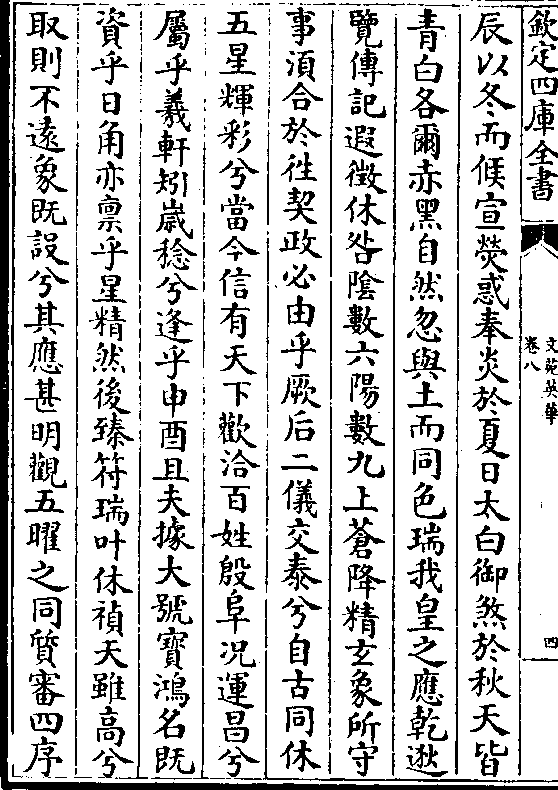 欽定四庫全書
文苑英華
卷八
四
辰以冬而候宣熒惑奉炎於夏日太白御煞於秋天皆
青白各爾赤黑自然忽與土而同色瑞我皇之應乾逖
覽傳記遐徵休咎陰數六陽數九上蒼降精玄象所守
事湏合於徃契政必由乎厥后二儀交泰兮自古同休
五星輝彩兮當今信有天下歡洽百姓殷阜况運昌兮
屬乎羲軒矧嵗稔兮逢乎申酉且夫據大號寳鴻名既
資乎日角亦禀乎星精然後臻符瑞叶休禎天雖高兮
取則不逺象既設兮其應甚明觀五曜之同質審四序